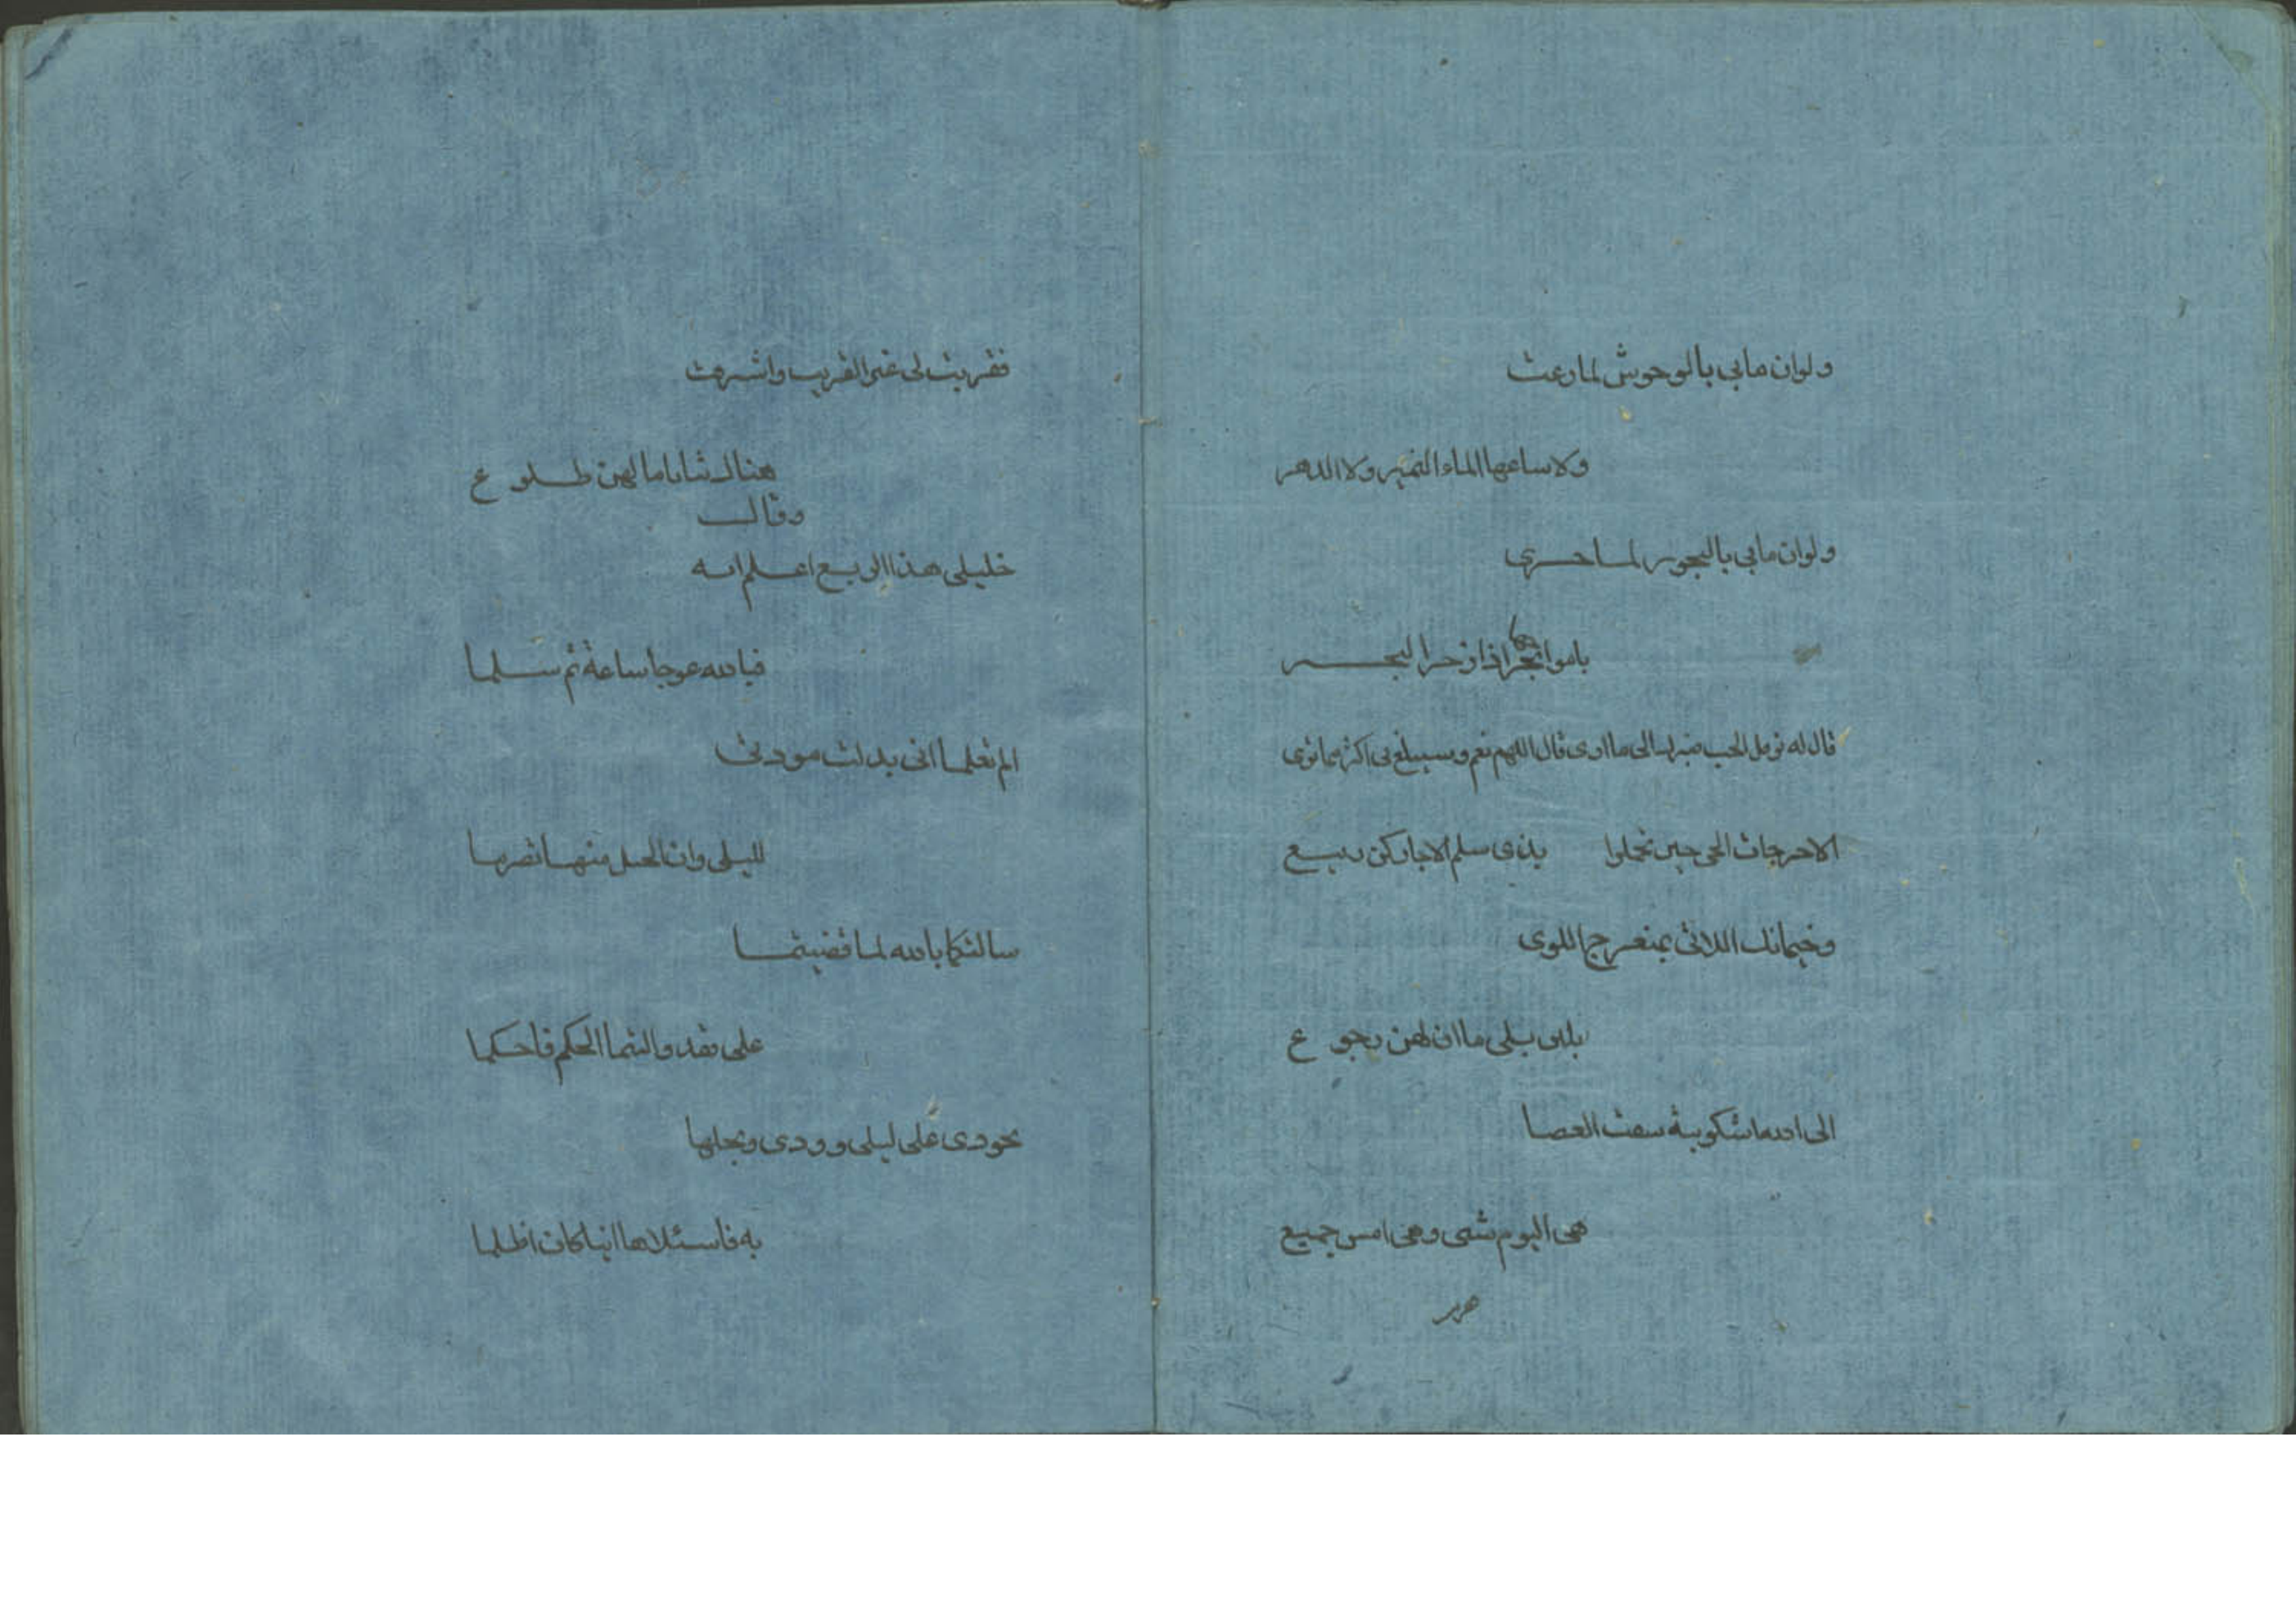 ولوان مابي بالوحوش لمارعت
ولاساعها الماء النمير ولا الدهر
ولوان مابي بالبحور لما جرى
بامواجها اذا زخر البحر
قال له نوفل الحب صيرك الى ما ارى قال اللهم نعم وسيبلغ بي اكثر مما ترى
الاحرجات الحي حين تحملوا بذي سلم لاجادكن ربيع
وخيماتك اللاتي بمنعرج اللوى
بلين بلى ما ان لهن رجوع
الى الله اشكو نية شقت العصا
هي اليوم شتى وهي امس جميع
فقربت لي غير القريب واشرفت
هناك ثنايا ما لهن طلوع
وقال
خليلي هذا الربع اعلم انه
فبالله عوجا ساعة ثم سلما
الم تعلما اني بذلت مودتي
لليلى وان الحبل منها تصرما
سالتكما بالله لما قضيتما
علي فقد وليتما الحكم فاحكما
بجودي على ليلى وودي وبخلها
به فاسئلاها اينا كان اظلما